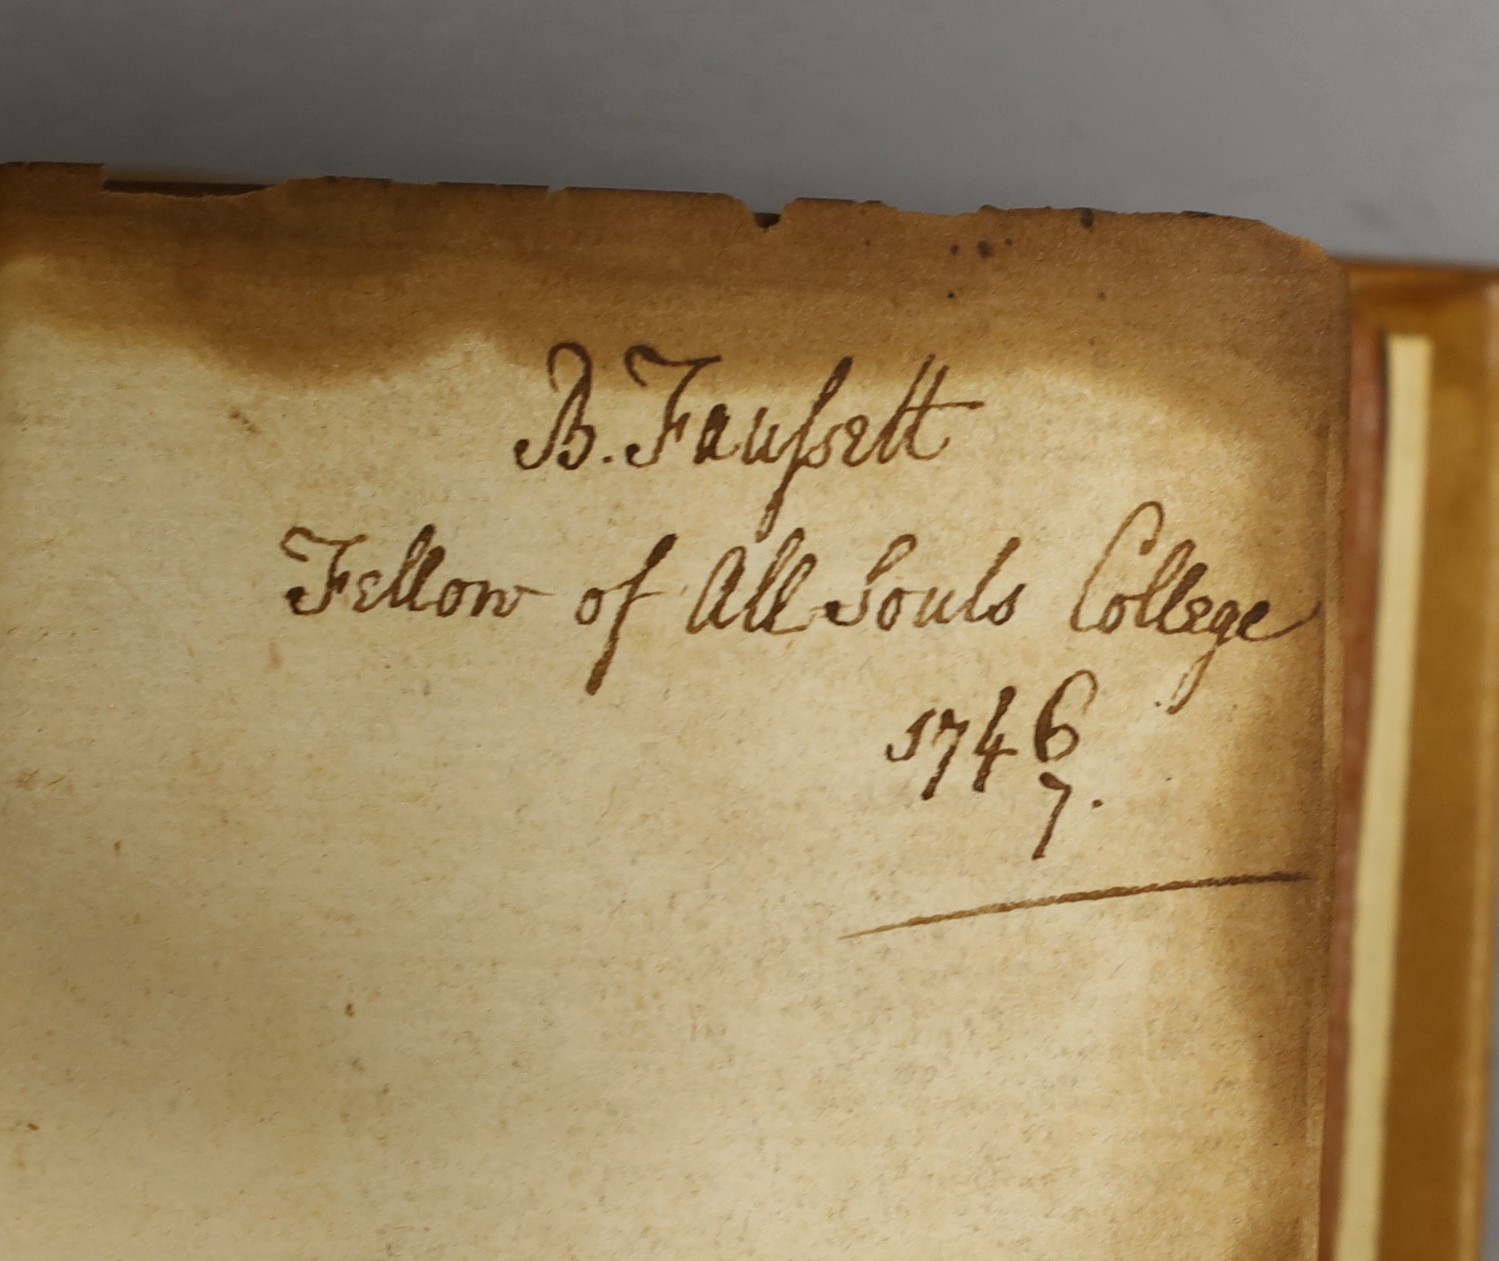 B. Fauſsett
Fellow of All Souls College
1746
7.